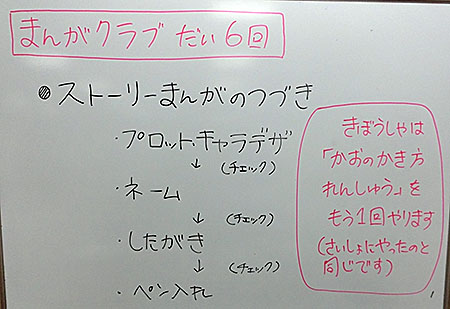 まんがクラブ だい6回
◎ストーリーまんがのつづき
・プロット・キャラデザ
↓ (チェック)
・ネーム
↓ (チェック)
・したがき
↓ (チェック)
・ペン入れ
きぼうしゃは
「かおのかき方
れんしゅう」を
もう1回やります
(さいしょにやったのと
同じです)